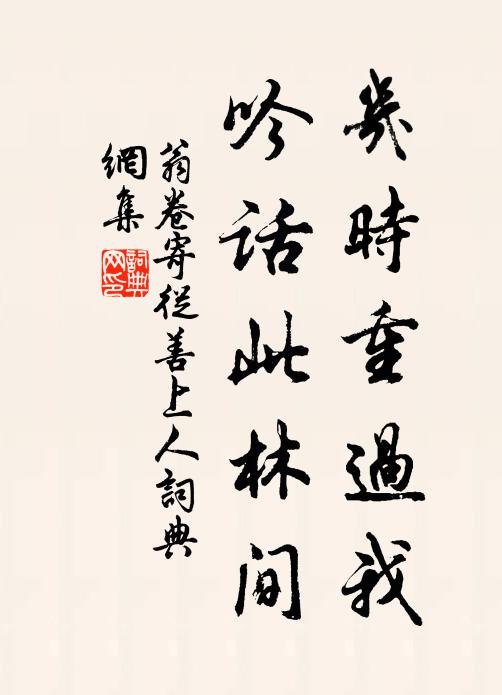 幾時重過我
吟話此林間
翁卷寄從善上人詞典
網集
詞典网印